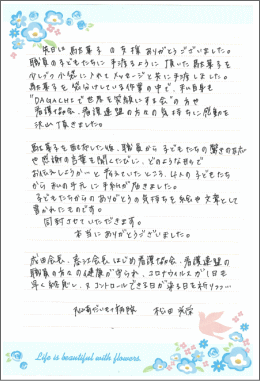 先日は駄菓子の支援ありがとうございました。
職員の子どもたちに手渡るように頂いた駄菓子を
少しづつ小袋に入れてメッセージと共に手渡しました。
駄菓子を袋分けしている作業の中で、私自身も
"DAGASHIで世界を笑顔にする会"の方や
看護協会、看護連盟の方々の気持ちに感動を
沢山頂きました。
駄菓子を配布した後、職員から子どもたちの驚きの反応
や感謝の言葉を聞くたびに、どのような形で
お伝えしようか…と考えていたところ、4人の子どもたち
から私の手元に手紙が届きました。
子どもたちからのありがとうの気持ちを絵や文章として
書かれたものです。
同封させていただきます。
本当にありがとうございました。
会長はじめ看護協会、看護連盟の
職員の方々の健康が守られ、コロナウイルスが1日も
早く終息し、コントロールできる日が来る日を祈りつつ…
松田
Life is beautiful with flowers.